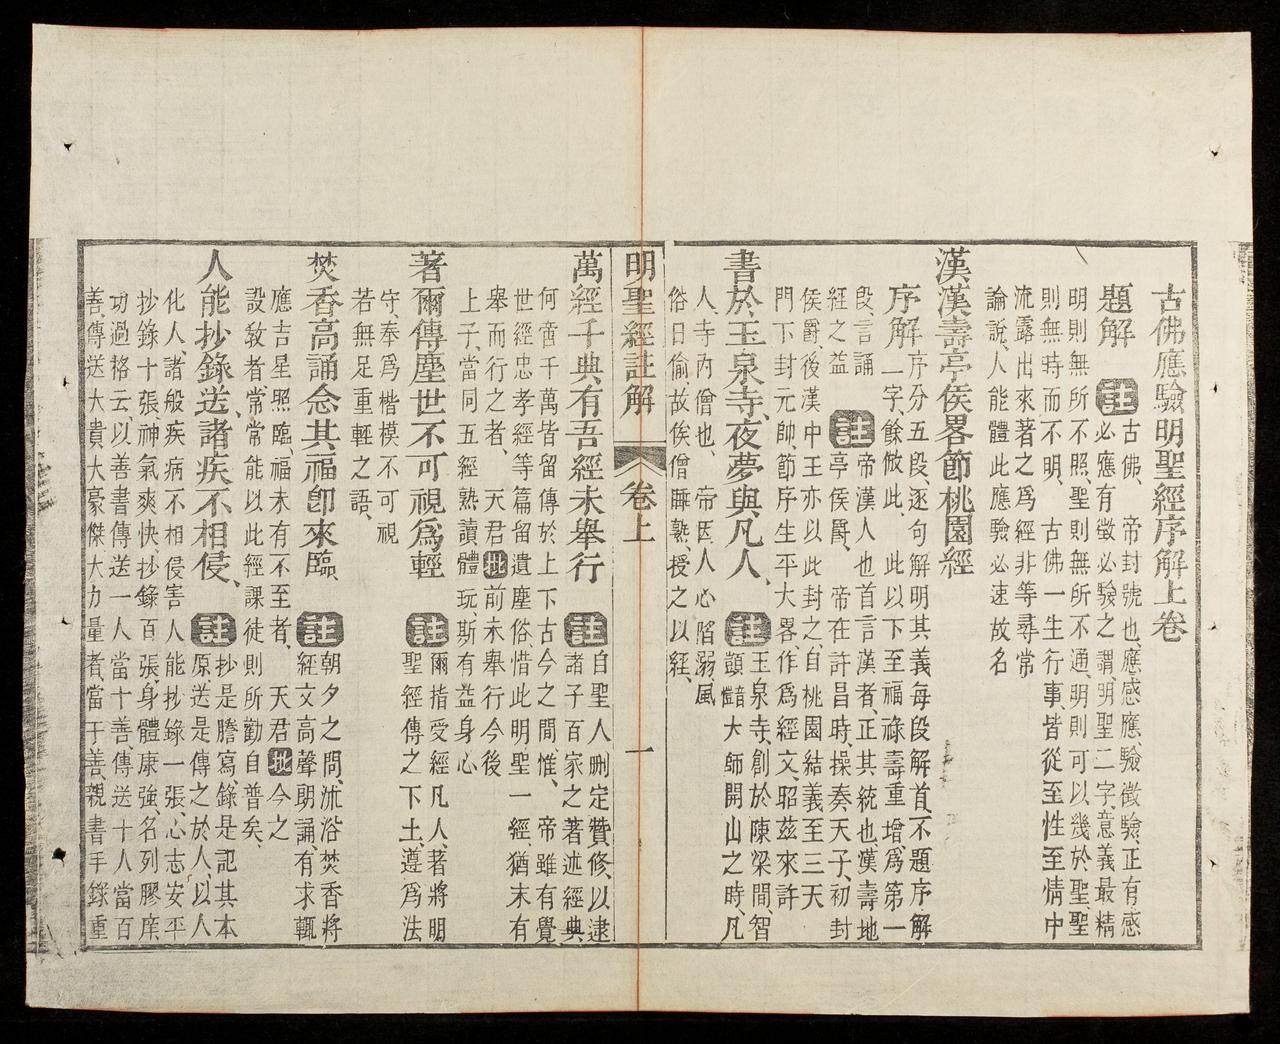 古佛應驗明聖經序解上卷
題解 註 古佛、帝封號也、應感應驗徵驗、正有感
必應有徵必驗之謂、明聖二字、意義最精
明則無所不照、聖則無所不通、明則可以幾於聖、聖
則無時而不明、古佛一生行事、皆從至性至情中
流露出來著之爲經非等尋常
論說、人能體此應驗必速故名
漢漢壽亭侯畧節桃園經
序解 序分五段、逐句解明其義每段解首、不題序解
一字、餘倣此、此以下至福祿壽重增、爲第一
段、言誦
經之益 註 帝漢人也首言漢者、正其統也漢壽地
亭侯爵、帝在許昌時、操奏天子、初封
侯爵、後漢中王亦以此封之、自桃園結義至三天
門下封元帥、節序生平大畧作爲經文、昭茲來許
書於玉泉寺、夜夢與凡人、 註 玉泉寺、創於陳梁間、智
顗大師開山之時凡
人、寺內僧也、帝因人心陷溺、風
俗日偷、故俟僧睡熟、授之以經、
明聖經註解 卷上 一
萬經千典有吾經未舉行 註 自聖人刪定贊修、以逮
諸子百家之著述經典
何啻千萬皆留傳於上下古今之間、惟、帝雖有覺
世經忠孝經等篇留遺塵俗、惜此明聖一經、猶未有
舉而行之者、天君批前未舉行今後
上子、當同五經熟讀體玩斯有益身心
著爾傳塵世不可視爲輕 註 爾指受經凡人、著將明
聖經傳之下土、遵爲法
守、奉爲楷模不可視
若無足重輕之語、
焚香高誦念其福卽來臨、 註 朝夕之間、沐浴焚香將
經文高聲朗誦、有求輒
應吉星照臨、福未有不至者、天君批今之
設敎者、常常能以此經課徒則所勸自普矣、
人能抄錄送、諸疾不相侵、 註 抄是謄寫、錄是記其本
原、送是傳之於人、以人
化人、諸般疾病不相侵害人能抄錄一張、心志安平
抄錄十張、神氣爽快、抄錄百張、身體康強、名列膠庠
功過格云、以善書傳送一人當十善、傳送十人當百
善、傳送大貴大豪傑、大力量者、當千善、親書手錄重